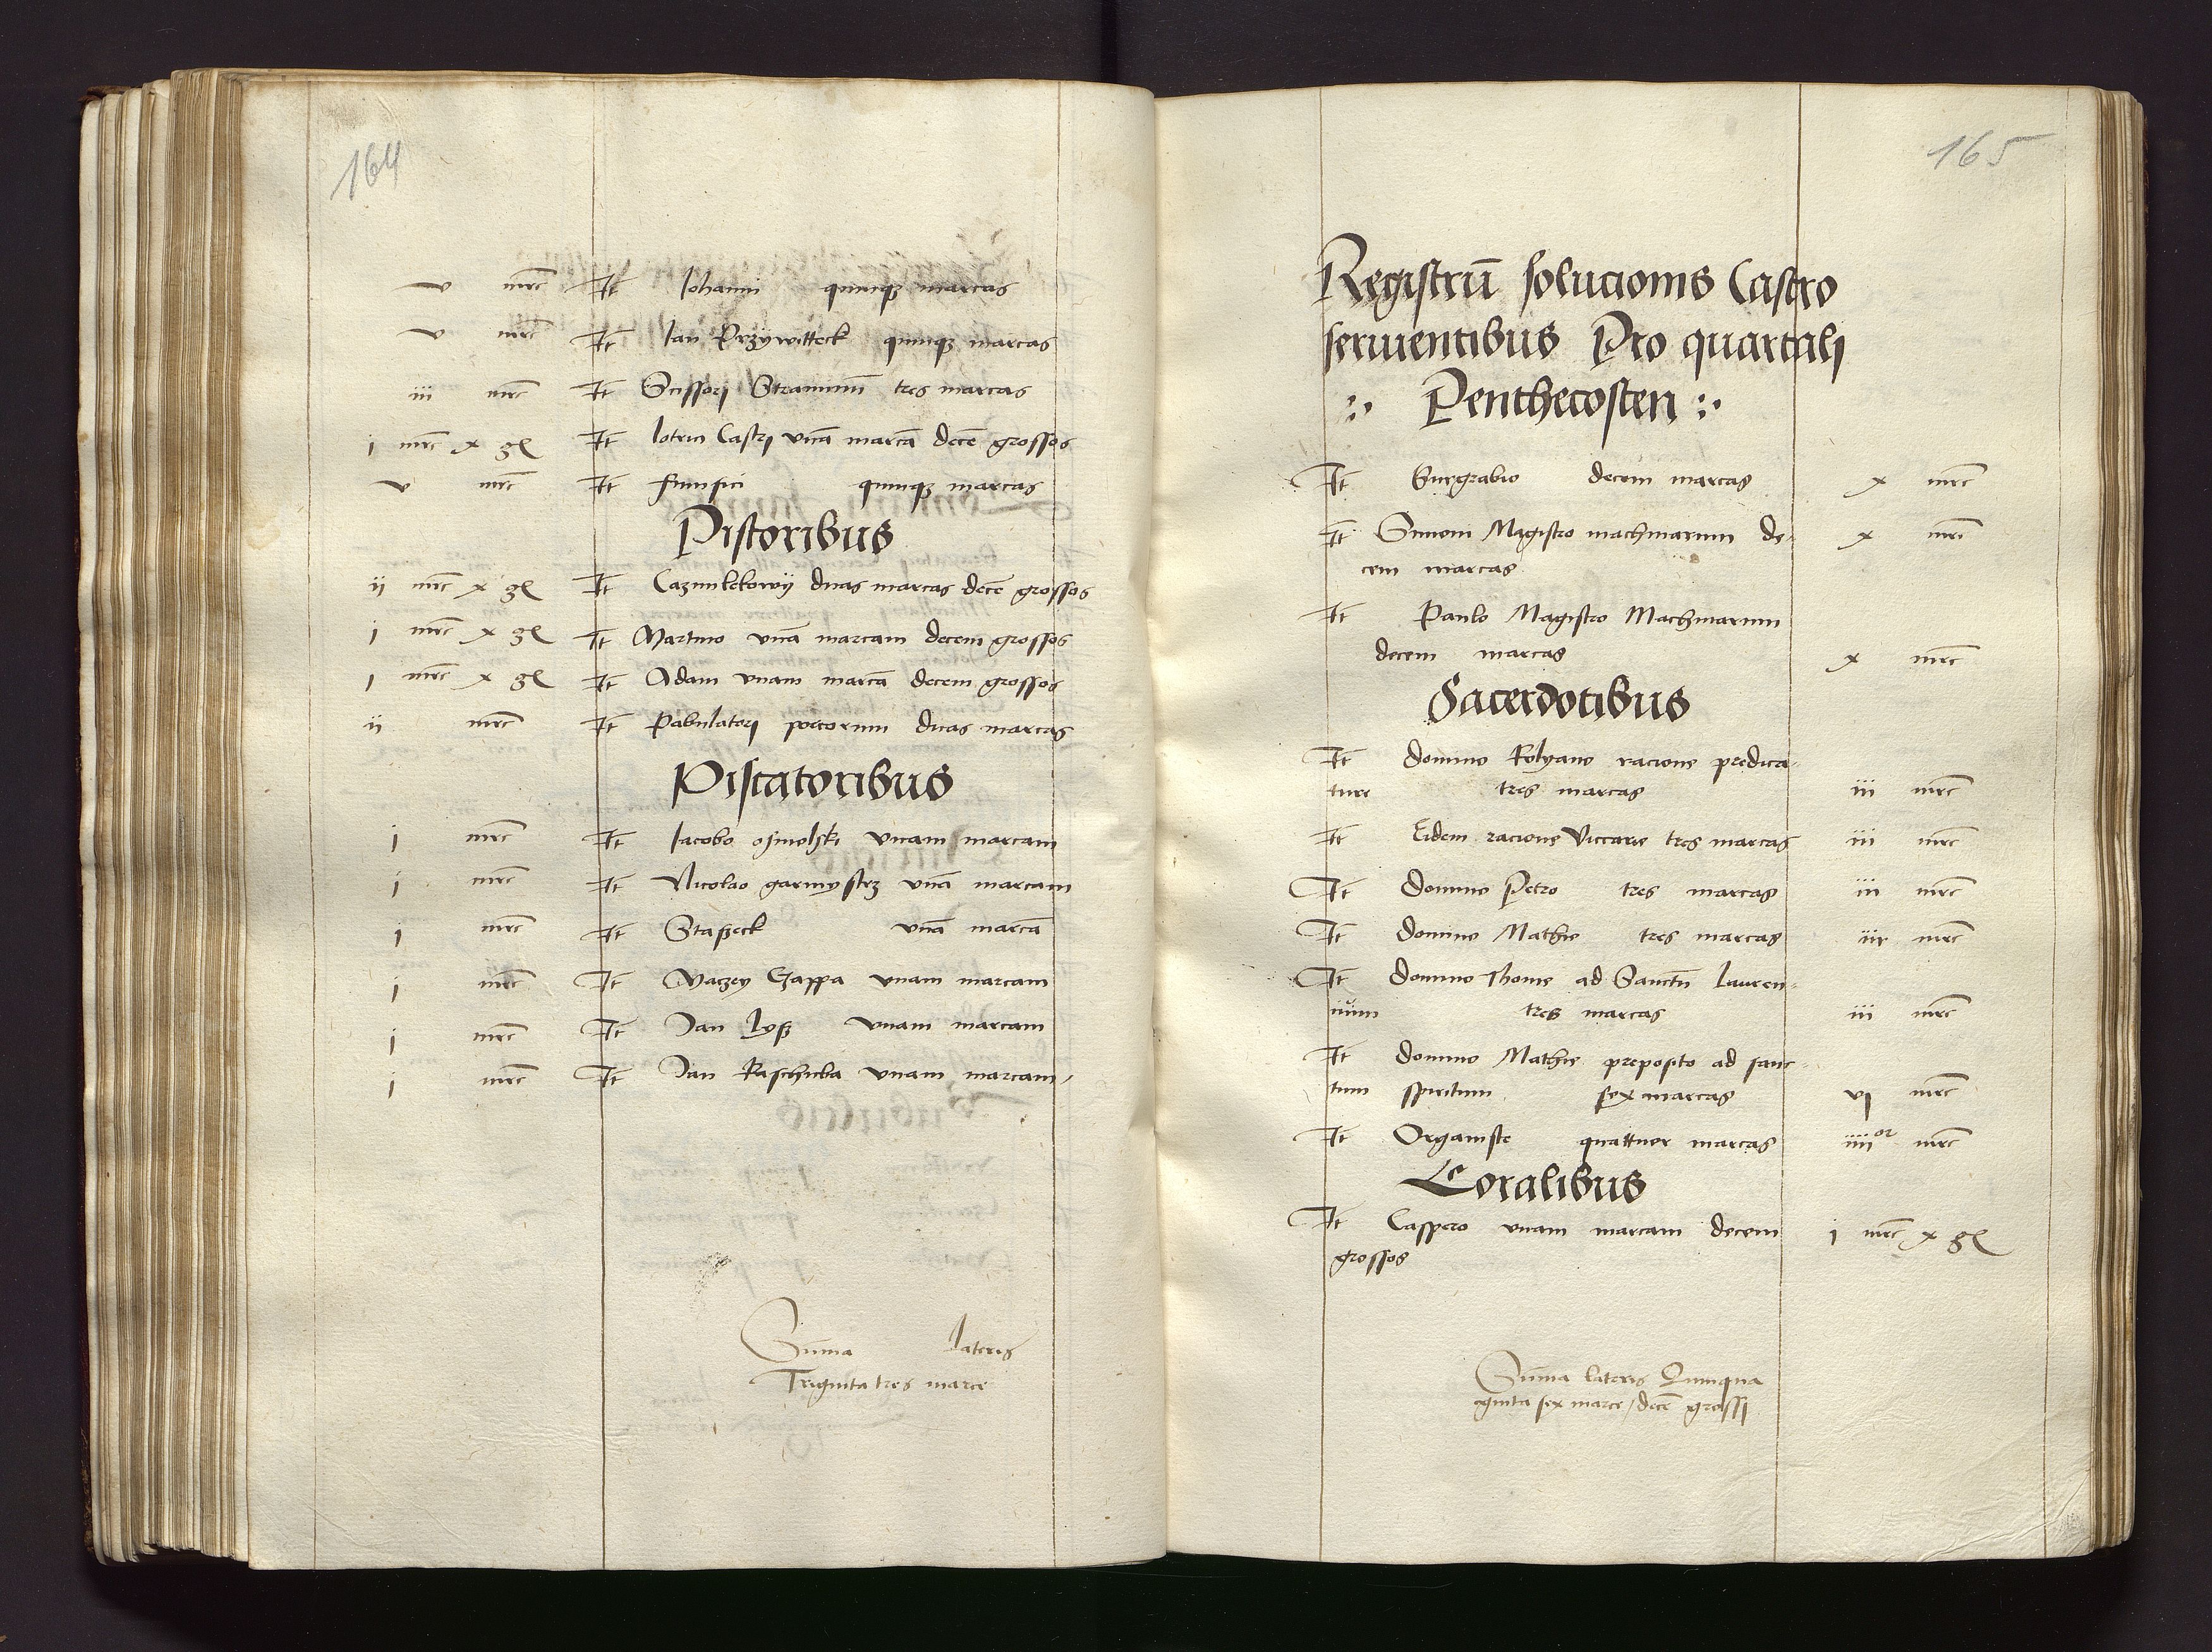 164
v mrc It Iohanni quinqз marcas
v mrc It Ian Przywitteck quinqз marcas
iii mrc It Scissorj Straminū tres marcas
j mrc x gl It lotrici Castrj vnā marcā decē grossos
v mrc It funifici quinqз marcas
Pistoribus
ij mrc x gl It Cazimlekowÿ duas marcas decē grossos
j mrc x gl It Martino vnā marcam decem grossos
j mrc x gl It Adam vnam marcā decem grossos
ij mrc It Pabulatorj porcorum duas marcas
Piscatoribus
j mrc It Iacobo osmolski vnam marcam
j mrc It Nicolao garnystrz vnā marcam
j mrc It Staßeck vnā marcā
j mrc It Maczey Gappa vnam marcam
j mrc It Ian Lyß vnam marcam
j mrc It Ian Kaschuba vnam marcam
Sūma lateris
Triginta tres marce
165
Registrū solucionis Castro
seruientibus Pro quartalj
Penthecosten
It Burgrabio decem marcas x mrc
It Simoni Magistro machinarum de- x mrc
cem marcas
It Paulo Magistro Machinarum
decem marcas x mrc
Sacerdotibus
It domino Kilyano racione predica-
ture tres marcas iii mrc
It Eidem racione Viccarie tres marcas iii mrc
It domino Petro tres marcas iii mrc
It domino Mathie tres marcas iii mrc
It domino Thome ad Sanctū Lauren-
tium tres marcas iii mrc
It domino Mathie preposito ad sanc-
tum spiritum sex marcas vj mrc
It Organiste quattuor marcas iiii or mrc
Coralibus
It Caspero vnam marcam decem j mrc x gl
grossos
Sūma lateris Quinqua
ginta sex marce / decē grossj